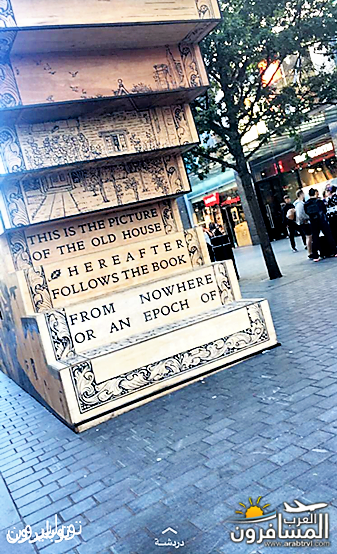 THIS IS THE PICTURE
OF THE OLD HOUSE
HEREAFTER
FOLLOWS THE BOOK
FROM NOWHERE
OR AN EPOCH OF
العرب
المسافرون
www.arabtryl.com
دردشة